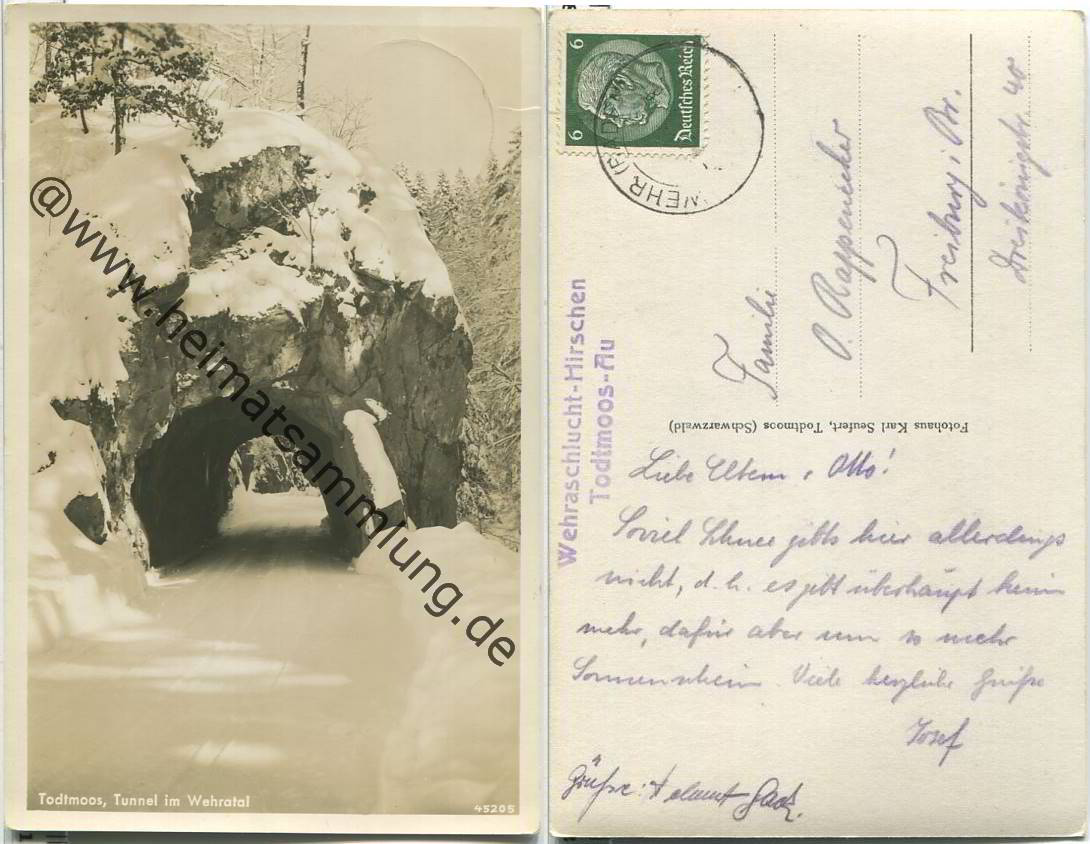 @www.heimatsammlung.de
Todtmoos, Tunnel im Wehratal
45205
6 6
Deutsches Reich
WEHR (BADEN)
Wehraschlucht-Hirschen
Todtmoos-Au
Familie
O. Rappenecker
Freiburg i. Br.
Dreikönigstr. 40
Fotohaus Karl Seufert, Todtmoos (Schwarzwald)
Liebe Eltern, Otto!
Soviel Schnee gibts hier allerdings
nicht, d.h. es gibt überhaupt keinen
mehr, dafür aber um so mehr
Sonnenschein. Viele herzliche Grüße
Josef
Grüße: Helmut